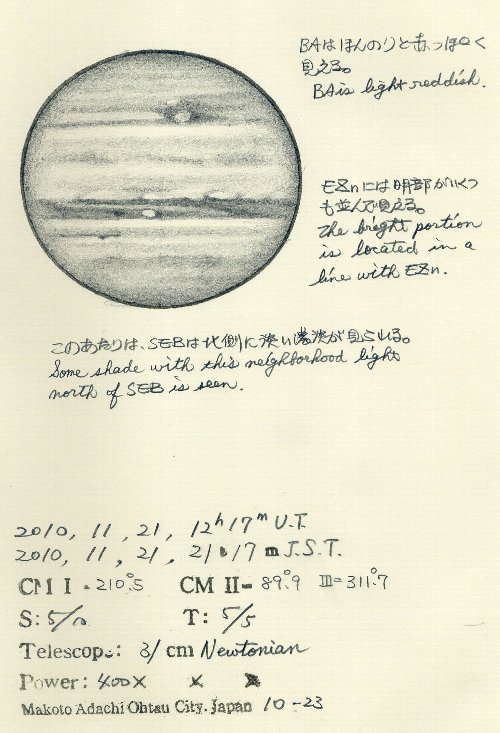 BAはほんのりと赤っぽく
見える。
BA is light reddish.
EZnには明部がいくつ
も並んで見える。
The bright portion
is located in a
line with EZn.
このあたりは、SEBは北側に淡い濃淡が見られる。
Some shade with this neighborhood light
north of SEB is seen.
2010, 11, 21, 12h17m U.T.
2010, 11, 21, 21h17m J.S.T.
CM I = 210°.5 CM II = 89°.9 III = 311°.7
S: 5/10 T: 5/5
Telescope: 31 cm Newtonian
Power: 400× × ×
Makoto Adachi Ohtau City. Japan 10-23